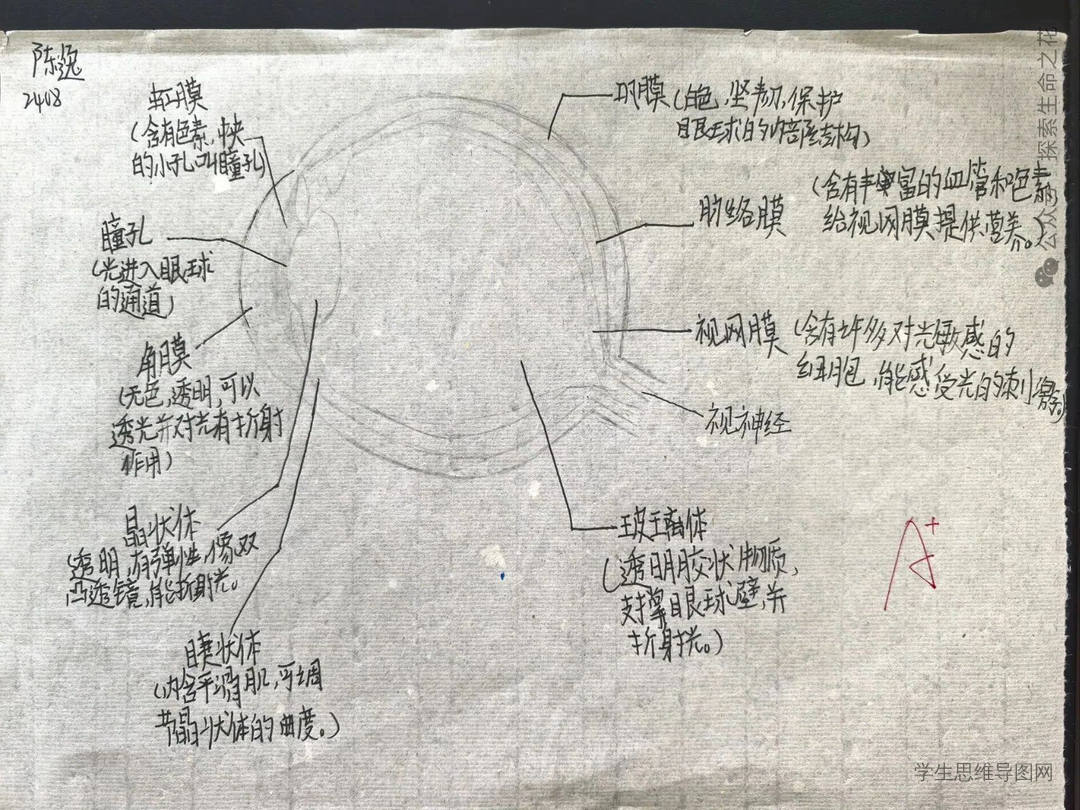 陈逸
2408
虹膜
(含有色素,中央
的小孔叫瞳孔)
瞳孔
(光进入眼球
的通道)
角膜
(无色,透明,可以
透光并对光有折射
作用)
晶状体
(透明,有弹性,像双
凸透镜,能折射光。
睫状体
(内含平滑肌,可调
节晶状体的曲度。)
巩膜(白色,坚韧,保护
眼球的内部结构)
脉络膜
(含有丰富的血管和色素
给视网膜提供营养。)
视网膜
(含有许多对光敏感的
细胞,能感受光的刺激。)
视神经
玻璃体
(透明胶状物质,
支撑眼球壁,并
折射光。)
A+
公众号 探索生命之花
学生思维导图网